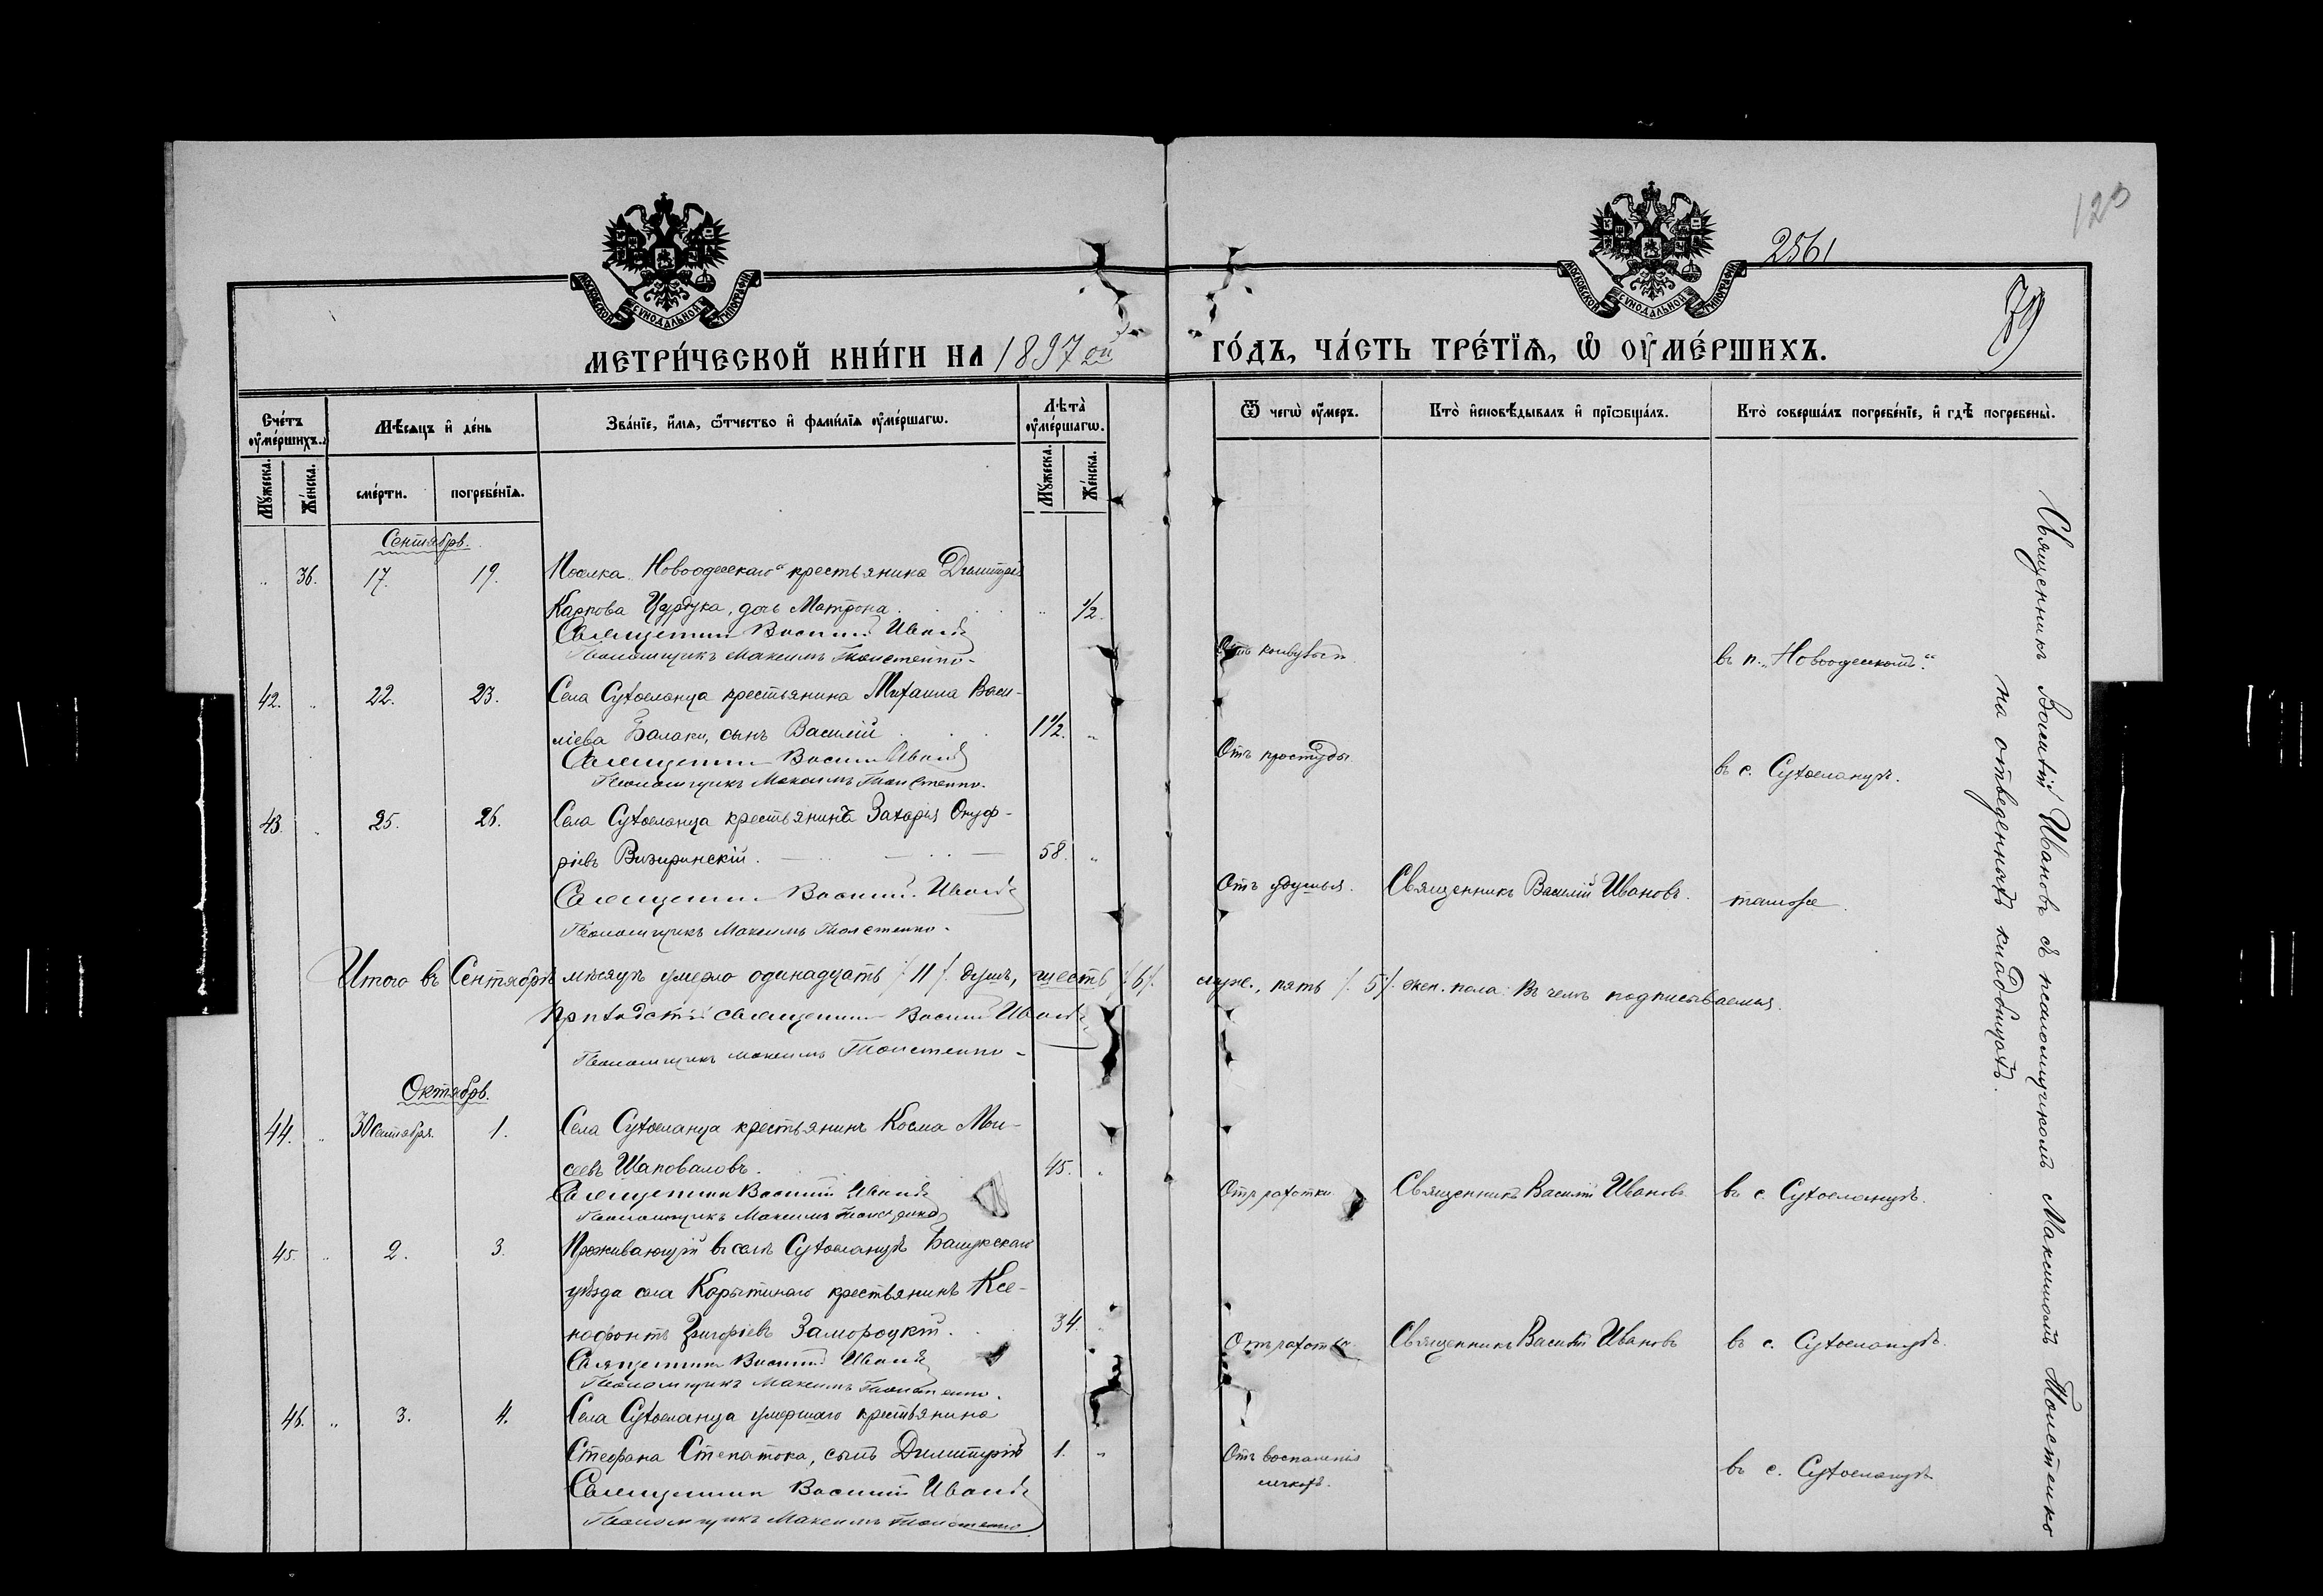 120
2561
79
МОСКОВСКОЙ СѴНОДАЛЬНОЙ ТИПОГРАФІИ
МОСКОВСКОЙ СѴНОДАЛЬНОЙ ТИПОГРАФІИ
МЕТРИ́ЧЕСКОЙ КНИ́ГИ НА 1897 ой
ГО́ДЪ, ЧА́СТЬ ТРЕ́ТЇѦ, Ѡ ОУМЕ́РШИХЪ.
Сче́тъ оумє́ршихъ.
Мѣсѧцъ и де́нь
Зва́нїе, и́мѧ, ѻ́тчество и фами́лїѧ оуме́ршагѡ.
Лѣта̀ оуме́ршагѡ.
Ѿ чегѡ̀ оу́меръ.
Кто̀ исповѣ́дывалъ и прїѡбща́лъ.
Кто̀ соверша́лъ погребе́нїе, и гдѣ̀ погребены̀.
Му́жеска. Же́нска.
сме́рти. погребе́нїѧ.
Му́жеска. Же́нска.
Сентябрь.
" 36. 17. 19. Поселка "Новоодесскаго" крестьянина Димитрія
Карпова Цурдука, дочь Матрона. " 1/2.
Священникъ Василій Ивановъ
Псаломщикъ Максимъ Толстенко
Отъ конвульсій
въ п. "Новоодесскомъ".
42. " 22. 23. Села Сухоеланца крестьянина Михаила Васи-
ліева Балаки, сынъ Василій 1 1/2. "
Священникъ Василій Ивановъ
Псаломщикъ Максимъ Толстенко.
Отъ простуды
въ с. Сухоеланцѣ.
43. " 25. 26. Села Сухоеланца крестьянинъ Захарія Онуф-
ріевъ Визиринскій. 58. "
Священникъ Василій Ивановъ
Псаломщикъ Максимъ Толстенко.
Отъ удушья. Священникъ Василій Ивановъ. тамже.
Итого въ Сентябрѣ мѣсяцѣ умерло одинадцать /11/ душъ, шесть /6/ муж., пять /5/ жен. пола. Въ чемъ подписываемся.
Приходскій священникъ Василій Ивановъ
Псаломщикъ Максимъ Толстенко
Октябрь.
44. " 30 Сентября. 1. Села Сухоеланца крестьянинъ Косма Мои-
сеевъ Шаповаловъ. 45. "
Священникъ Василій Ивановъ
Псаломщикъ Максимъ Толстенко
Отъ чахотки Священникъ Василій Ивановъ въ с. Сухоеланцѣ.
45. " 2. 3. Проживающій въ селѣ Сухоеланцѣ
уѣзда села Корытнаго крестьянинъ Ксе-
нофонтъ Григоріевъ 34. "
Священникъ Василій Ивановъ
Псаломщикъ Максимъ Толстенко.
Отъ чахотки Священникъ Василій Ивановъ въ с. Сухоеланцѣ.
46. " 3. 4. Села Сухоеланца умершаго крестьянина
Стефана Степатока, сынъ Димитрій 1. "
Священникъ Василій Ивановъ
Псаломщикъ Максимъ Толстенко
Отъ воспаленія
легкихъ.
въ с. Сухоеланцѣ
Священникъ Василій Ивановъ съ псаломщикомъ Максимомъ Толстенко
на отведенныхъ кладбищахъ.